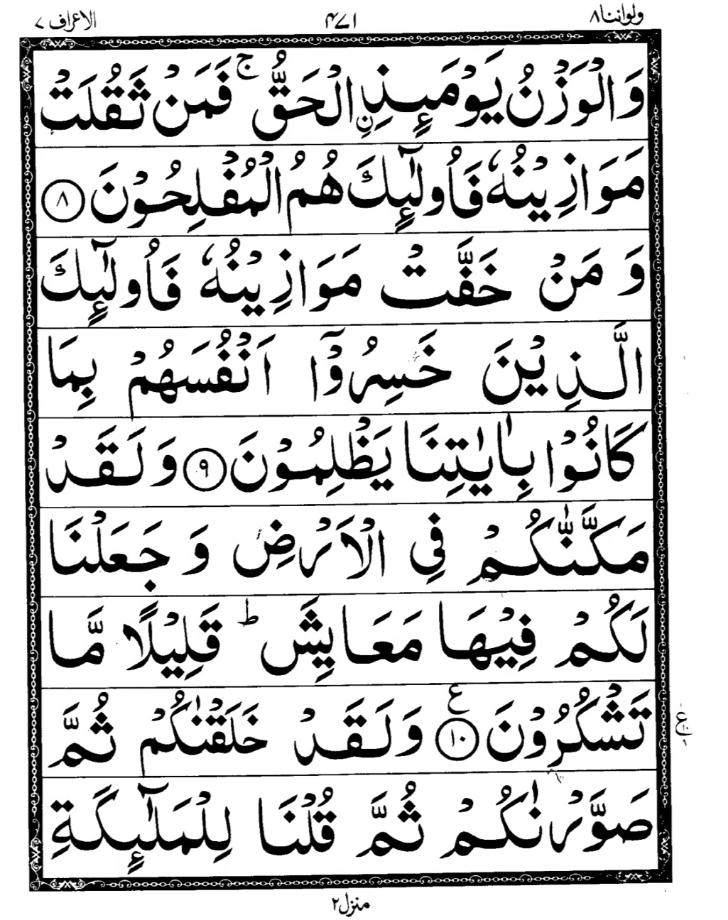 ولواننا ٨ ٤٧١ الاعراف ٧
وَالْوَزْنُ يَوْمَئِذِ ِۨالْحَقُّ ۚ فَمَنْ ثَقُلَتْ
مَوَازِيْنُهٗ فَاُولٰٓئِكَ هُمُ الْمُفْلِحُوْنَ ٨
وَ مَنْ خَفَّتْ مَوَازِيْنُهٗ فَاُولٰٓئِكَ
الَّذِيْنَ خَسِرُوْٓا اَنْفُسَهُمْ بِمَا
كَانُوْا بِاٰيٰتِنَا يَظْلِمُوْنَ ٩ وَلَقَدْ
مَكَّنّٰكُمْ فِي الْاَرْضِ وَ جَعَلْنَا
لَكُمْ فِيْهَا مَعَايِشَ ؕ قَلِيْلًا مَّا
تَشْكُرُوْنَ ١٠ ع وَلَقَدْ خَلَقْنٰكُمْ ثُمَّ
صَوَّرْنٰكُمْ ثُمَّ قُلْنَا لِلْمَلٰٓئِكَةِ
منزل ٢